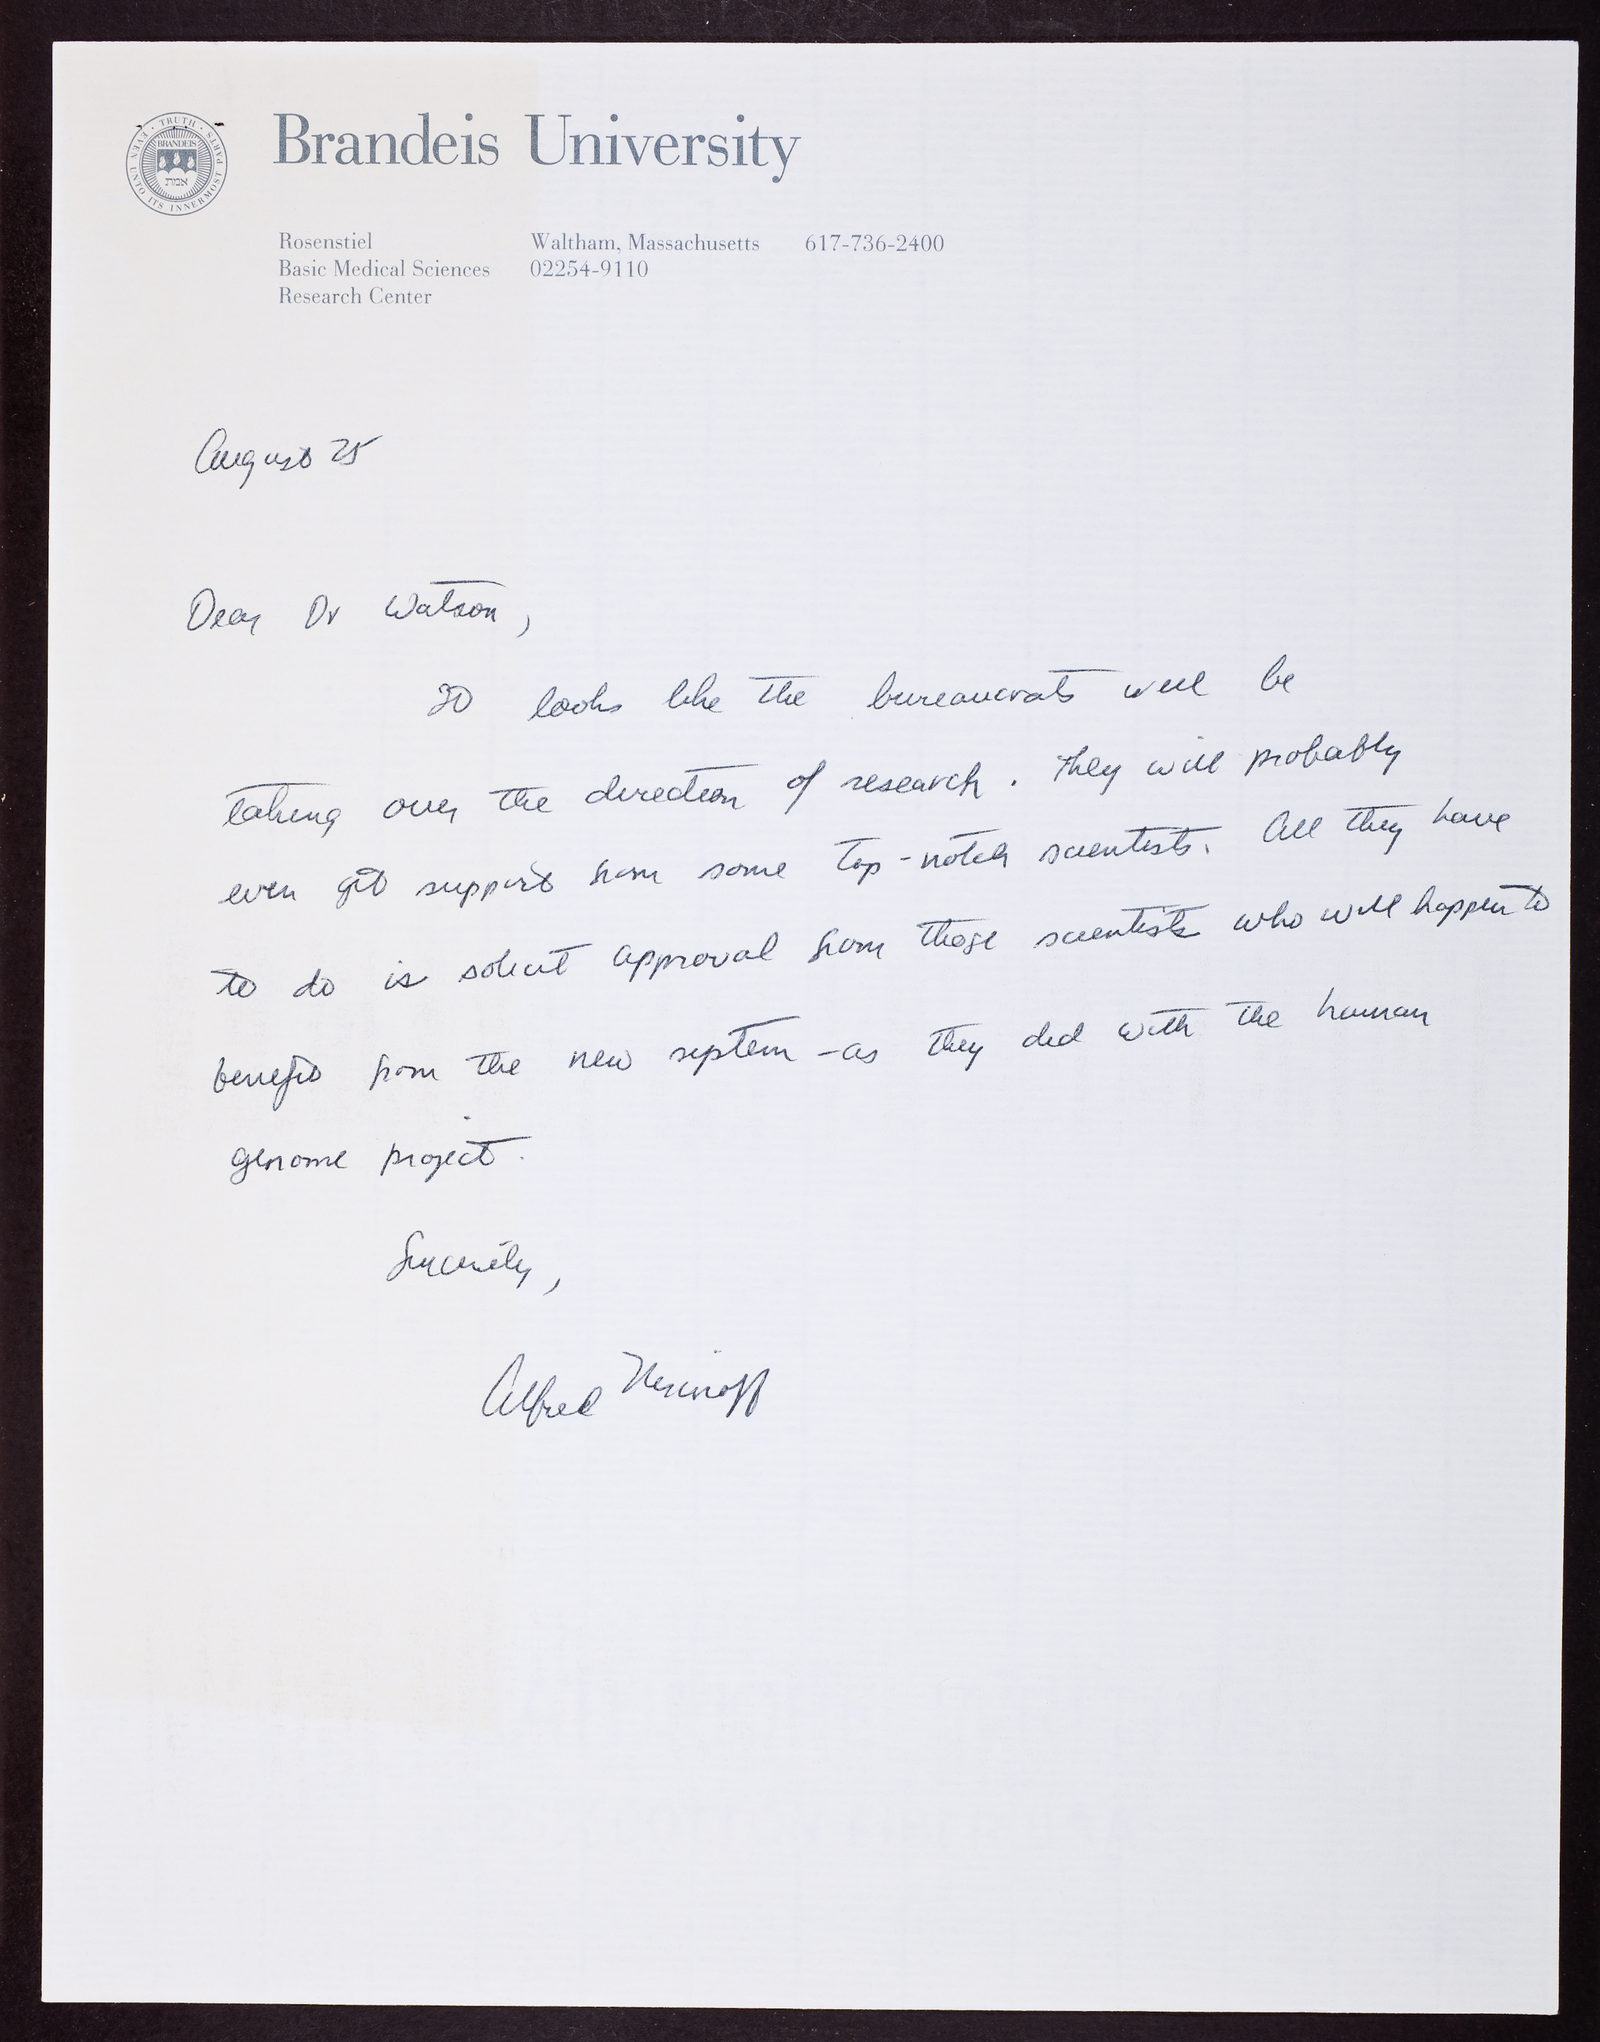 TRUTH · EVEN UNTO ITS INNERMOST PARTS
BRANDEIS
אמת
Brandeis University
Rosenstiel
Basic Medical Sciences
Research Center
Waltham, Massachusetts
02254-9110
617-736-2400
August 25
Dear Dr Watson,
It looks like the bureaucrats will be
taking over the direction of research. They will probably
even get support from some top-notch scientists. All they have
to do is solicit approval from those scientists who will happen to
benefit from the new system - as they did with the human
genome project.
Sincerely,
Alfred Nisonoff